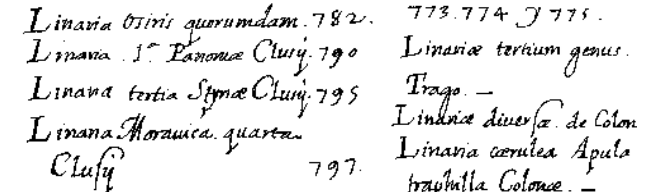 Linaria Osiris quorumdam. 782.
Linaria .1ª Panoniæ Clusij. 790
Linaria tertia Styriæ Clusij. 795
Linaria Moravica. quarta
Clusij 797.
773. 774 y 775.
Linariæ tertium genus.
Trago. —
Linariæ diversæ. de Colon
Linaria cærulea Apula
Colonæ. —